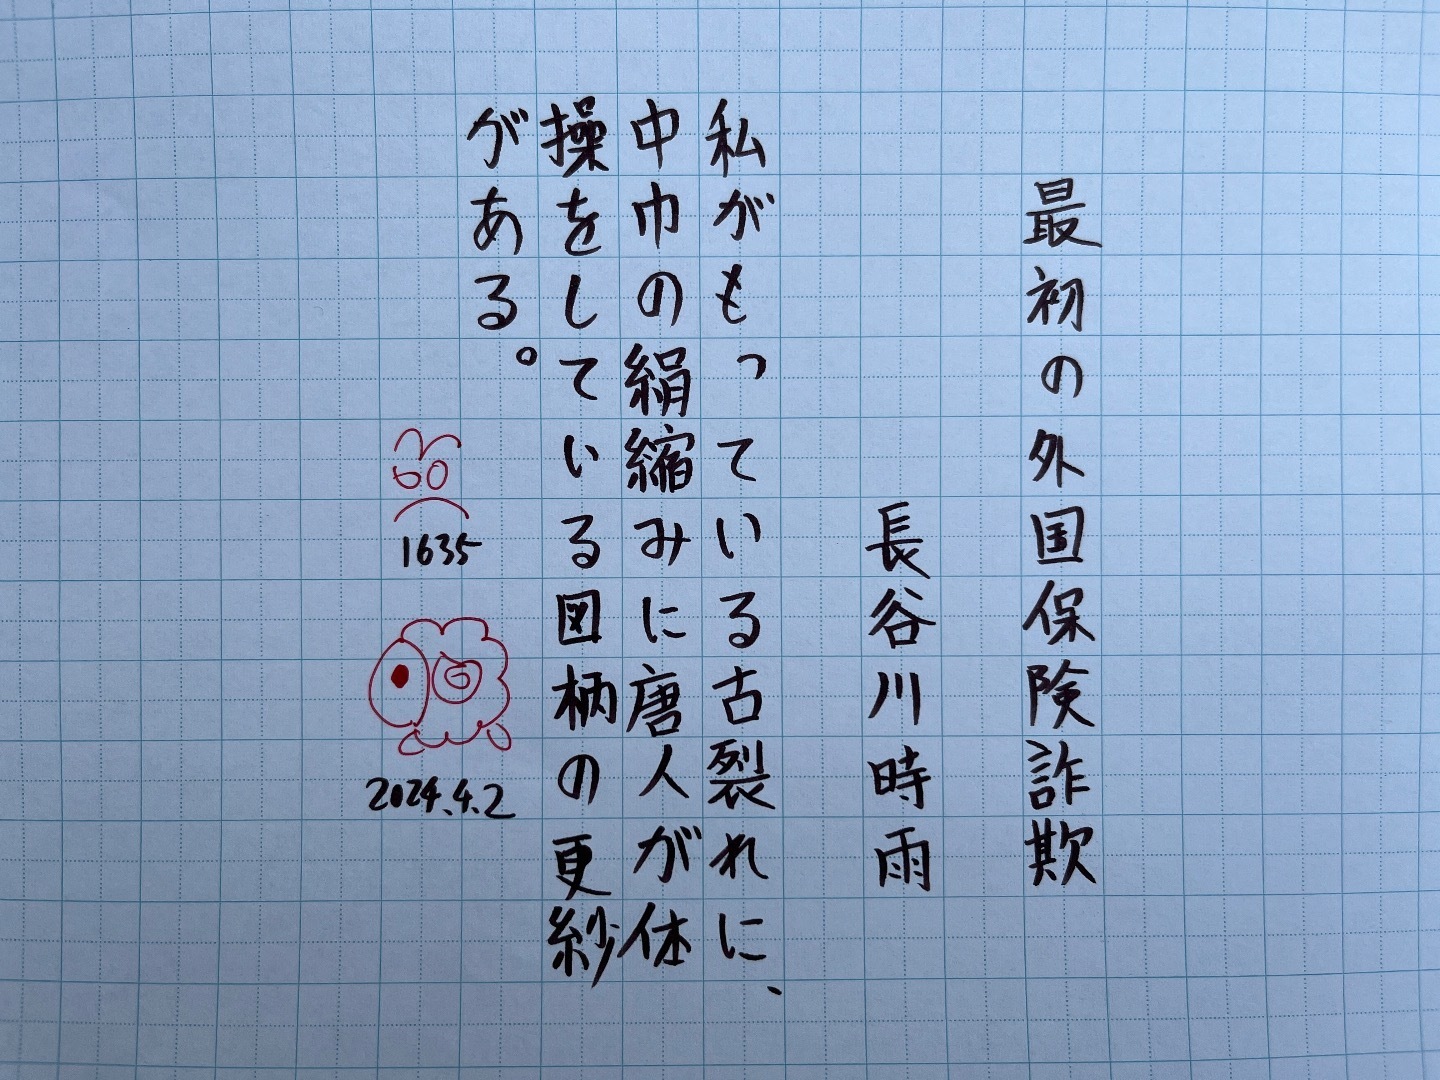 最初の外国保険詐欺
長谷川時雨
私がもっている古裂れに、
中巾の絹縮みに唐人が体
操をしている図柄の更紗
がある。
1635
2024.4.2